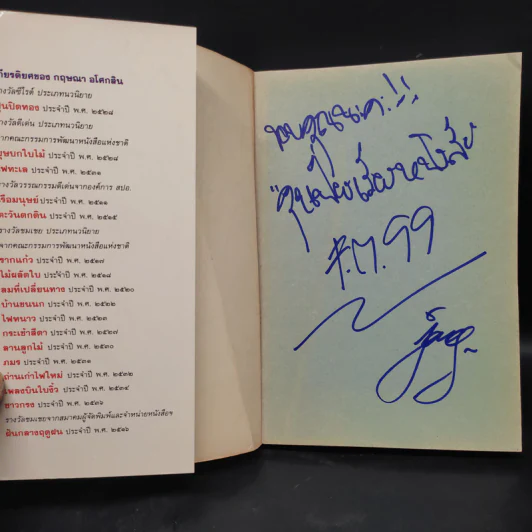 เกียรติยศของ กฤษณา อโศกสิน
รางวัลซีไรต์ ประเภทนวนิยาย
ปูนปิดทอง ประจำปี พ.ศ. ๒๕๒๘
รางวัลดีเด่น ประเภทนวนิยาย
จากคณะกรรมการพัฒนาหนังสือแห่งชาติ
บุษบกใบไม้ ประจำปี พ.ศ. ๒๕๒๘
ไฟทะเล ประจำปี พ.ศ. ๒๕๓๑
รางวัลวรรณกรรมดีเด่นจากองค์การ สปอ.
เรือมนุษย์ ประจำปี พ.ศ. ๒๕๑๑
ตะวันตกดิน ประจำปี พ.ศ. ๒๕๑๕
รางวัลชมเชย ประเภทนวนิยาย
จากคณะกรรมการพัฒนาหนังสือแห่งชาติ
รากแก้ว ประจำปี พ.ศ. ๒๕๑๗
ไม้ผลัดใบ ประจำปี พ.ศ. ๒๕๑๘
ลมที่เปลี่ยนทาง ประจำปี พ.ศ. ๒๕๒๐
บ้านขนนก ประจำปี พ.ศ. ๒๕๒๒
ไฟหนาว ประจำปี พ.ศ. ๒๕๒๓
กระเช้าสีดา ประจำปี พ.ศ. ๒๕๒๗
ลานลูกไม้ ประจำปี พ.ศ. ๒๕๓๐
ภมร ประจำปี พ.ศ. ๒๕๓๑
ถ่านเก่าไฟใหม่ ประจำปี พ.ศ. ๒๕๓๒
เพลงบินใบงิ้ว ประจำปี พ.ศ. ๒๕๓๔
ขาวกรง ประจำปี พ.ศ. ๒๕๓๖
รางวัลชมเชยจากสมาคมผู้จัดพิมพ์และจำหน่ายหนังสือฯ
ฝันกลางฤดูฝน ประจำปี พ.ศ. ๒๕๑๖
ขอบคุณนะคะ!!
99